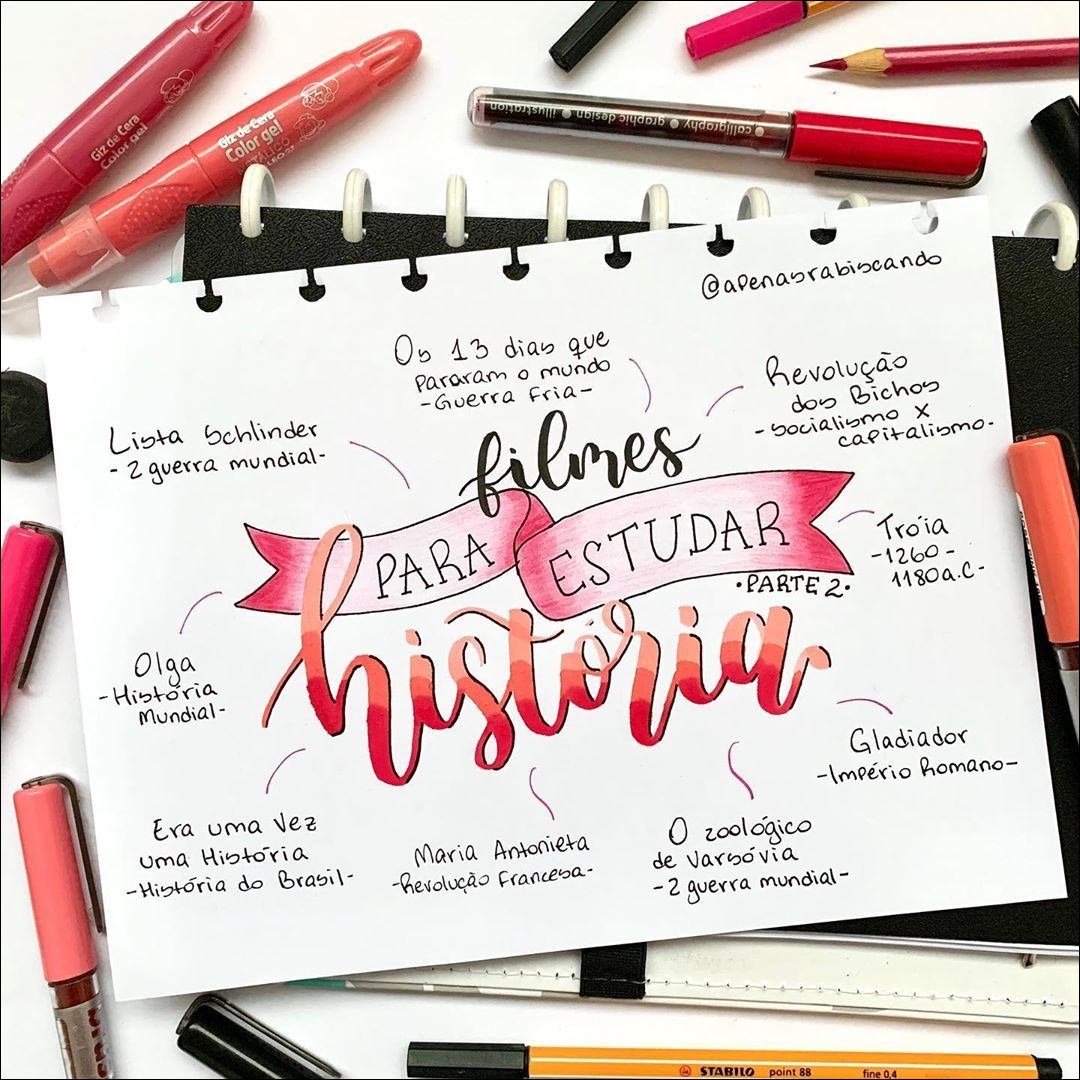 Giz de Cera
Color gel
Giz de Cera
Color gel
calligraphy • graphic design • illustration
@apenasrabiscando
Os 13 dias que
pararam o mundo
-Guerra Fria-
Revolução
dos Bichos
-socialismo x
capitalismo-
Lista Schlinder
-2 guerra mundial-
filmes
PARA ESTUDAR
•PARTE 2•
história
Tróia
-1260-
1180a.C-
Olga
-História
Mundial-
Gladiador
-Império Romano-
Era uma Vez
uma História
-História do Brasil-
Maria Antonieta
-Revolução Francesa-
O zoológico
de Varsóvia
-2 guerra mundial-
STABILO point 88 fine 0,4